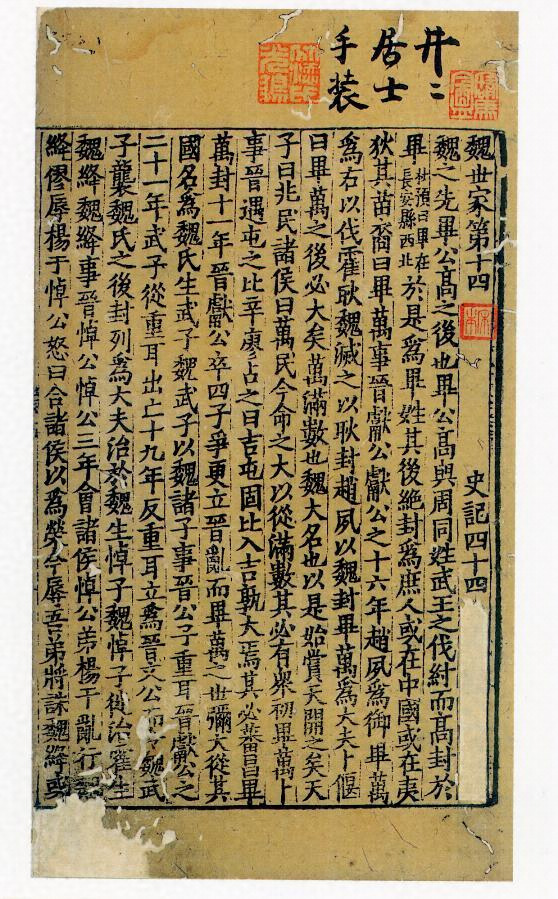 井二
居士
手装
魏世家第十四 史記四十四
魏之先畢公髙之後也畢公髙與周同姓武王之伐紂而髙封於
畢杜預曰畢在長安縣西北於是爲畢姓其後絶封爲庶人或在中國或在夷
狄其苗裔曰畢萬事晉獻公獻公之十六年趙夙爲御畢萬
爲右以伐霍耿魏滅之以耿封趙夙以魏封畢萬爲大夫卜偃
曰畢萬之後必大矣萬滿數也魏大名也以是始賞天開之矣天
子曰兆民諸侯曰萬民今命之大以從滿數其必有衆初畢萬卜
事晉遇屯之比辛廖占之曰吉屯固比入吉孰大焉其必蕃昌畢
萬封十一年晉獻公卒四子爭更立晉亂而畢萬之世彌大從其
國名爲魏氏生武子魏武子以魏諸子事晉公子重耳晉獻公之
二十一年武子從重耳出亡十九年反重耳立爲晉文公而魏武
子襲魏氏之後封列爲大夫治於魏生悼子魏悼子徙治霍生
魏絳魏絳事晉悼公悼公三年會諸侯悼公弟楊干亂行
絳僇辱楊干悼公怒曰合諸侯以爲榮今辱吾弟將誅魏絳或